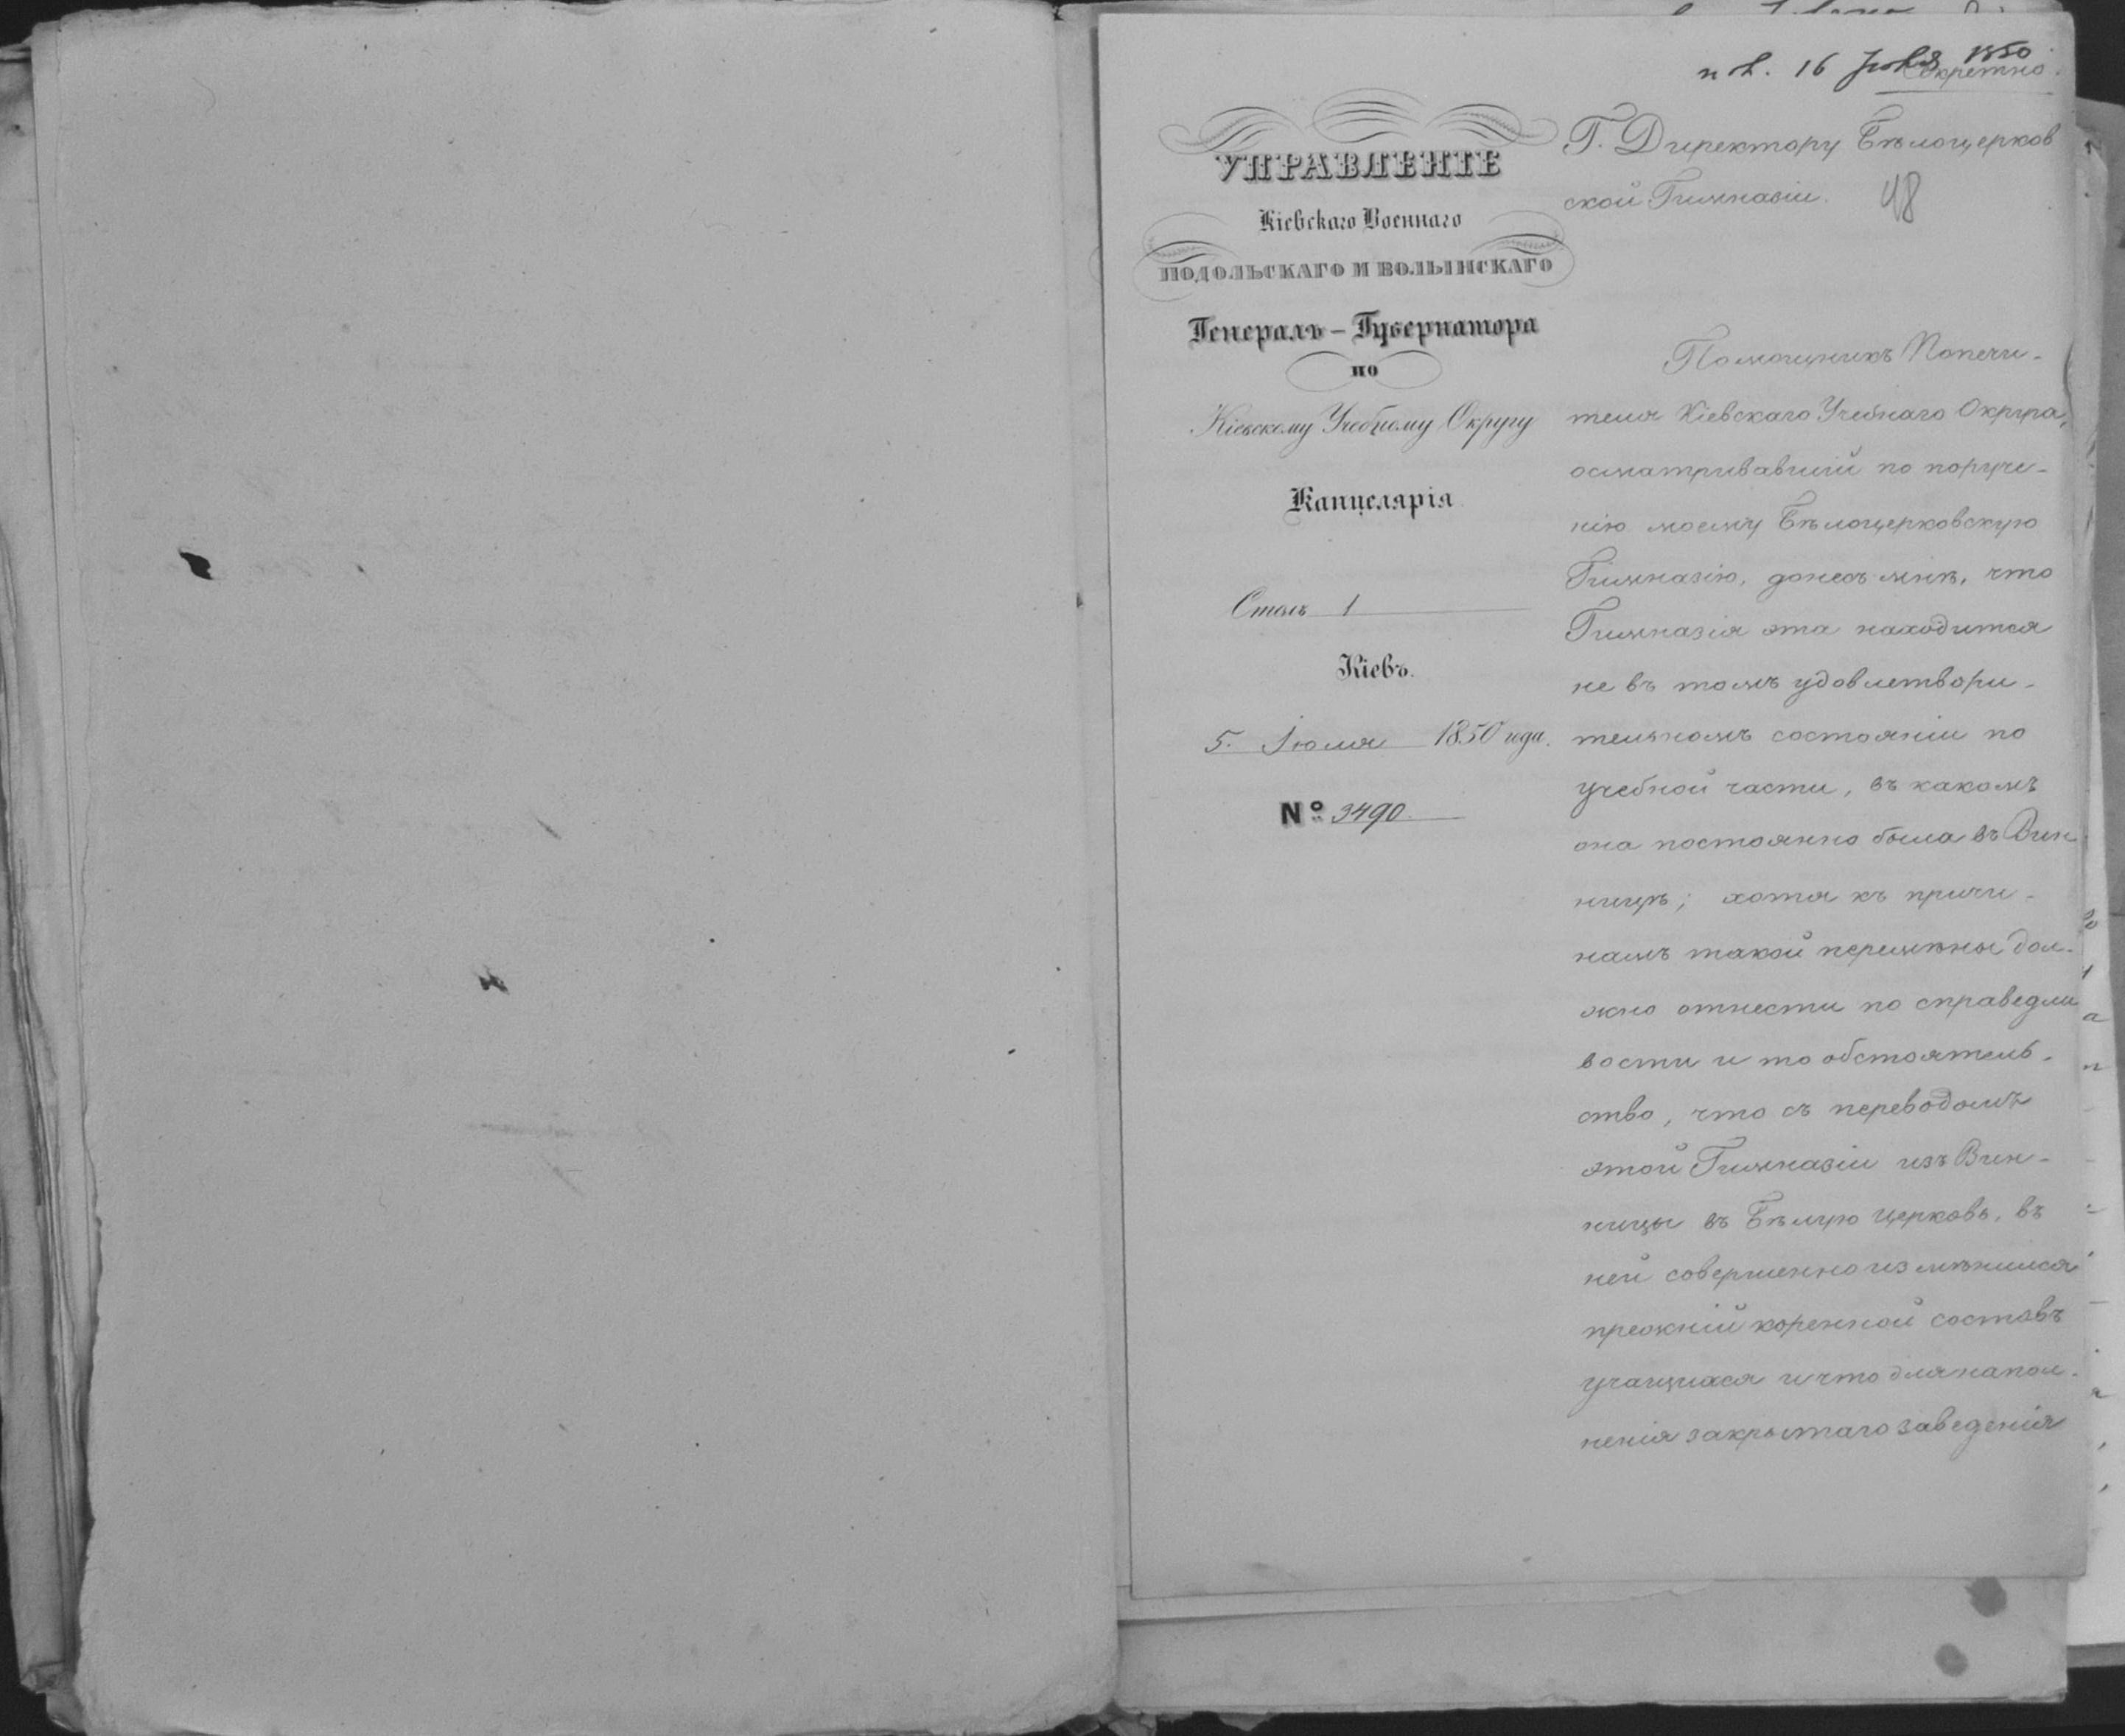 16 Іюля 1850
Секретно.
УПРАВЛЕНІЕ
Кіевскаго Военнаго
ПОДОЛЬСКАГО И ВОЛЫНСКАГО
Генералъ-Губернатора
ПО
Кіевскому Учебному Округу
Канцелярія
Столъ 1
Кіевъ.
5. Іюля 1850 года.
№ 3490.
Г. Директору Бѣлоцерков
ской Гимназіи.
48
Помощникъ Попечи-
теля Кіевскаго Учебнаго Округа,
осматривавшій по поруче-
нію моему Бѣлоцерковскую
Гимназію, донесъ мнѣ, что
Гимназія эта находится
не въ томъ удовлетвори-
тельномъ состояніи по
учебной части, въ какомъ
она постоянно была въ Вин
ницѣ; хотя къ причи-
намъ такой перемѣны дол-
жно отнести по справедли
вости и то обстоятель-
ство, что съ переводомъ
этой Гимназіи изъ Вин-
ницы въ Бѣлую Церковь, въ
ней совершенно измѣнился
прежній коренной составъ
учащихся и что для напол-
ненія закрытаго заведенія